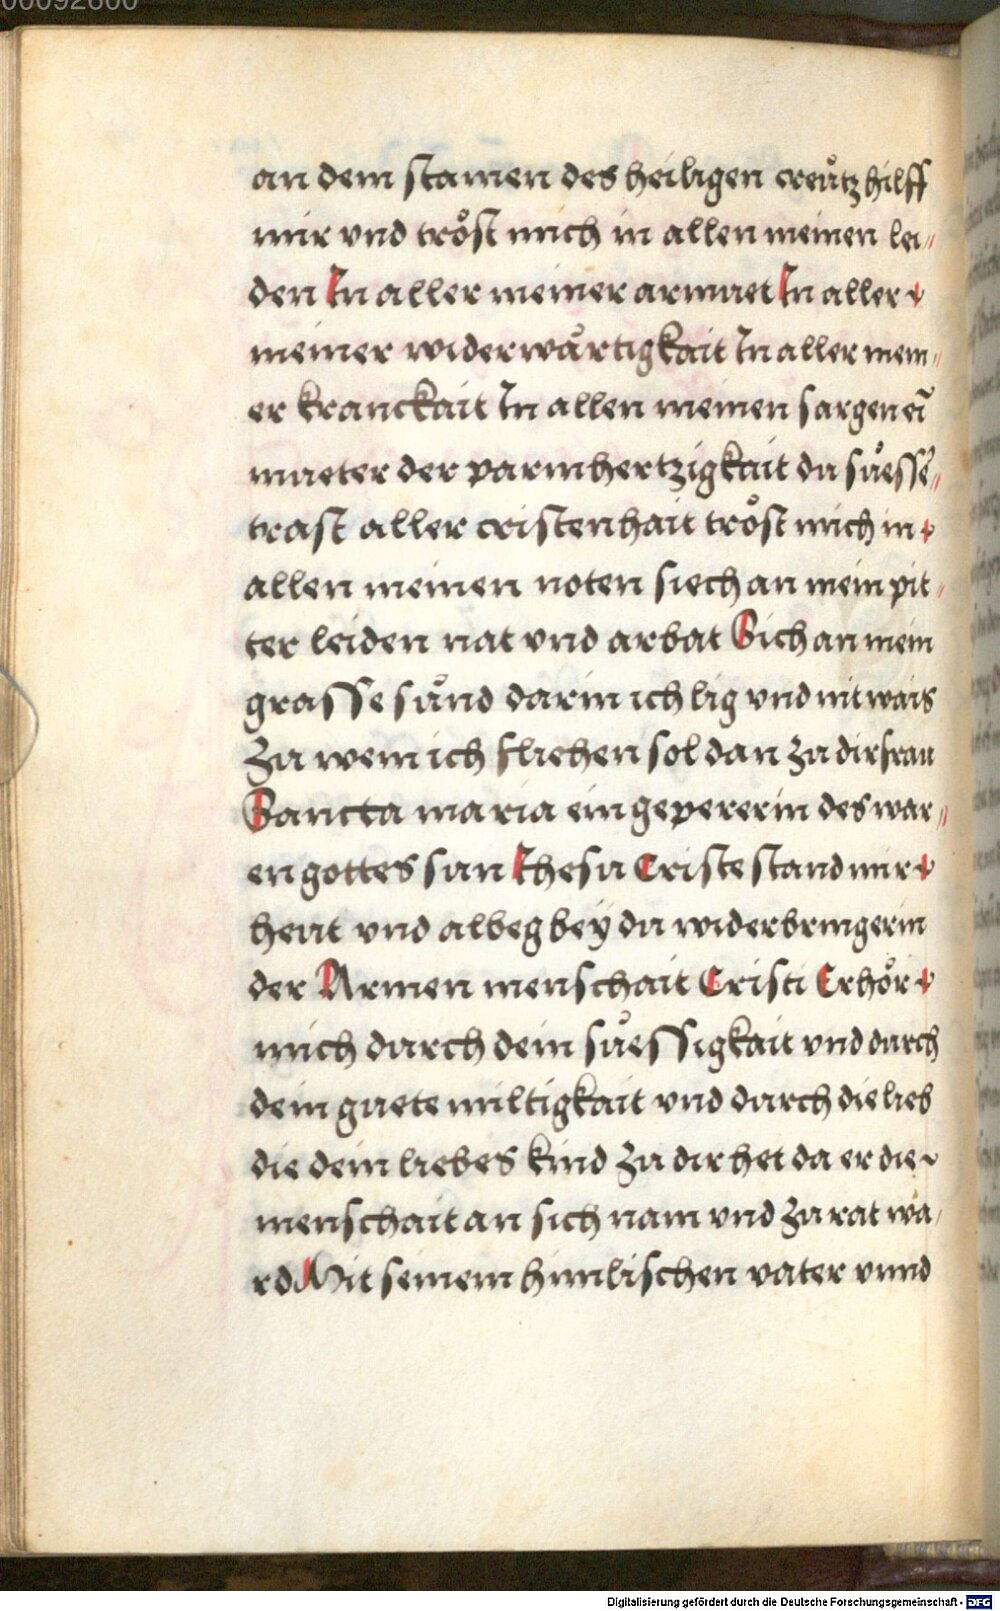 00092600
an dem stamen des heiligen creůtz hilff
mir vnd trőst mich in allen meinen lei-
den In aller meiner armuet In aller
meiner widerwårtigkait In aller mein-
er kranckait In allen meinen sargen ei
mueter der parmhertzigkait du sůesse-
trast aller cristenhait trőst mich in
allen meinen noten siech an mein pit-
ter leiden nat vnd arbat Sich an mein
grasse sůnd darin ich lig vnd nit wais
Zu wem ich fliehen sol dan zu dir frau
Sancta maria ein gepererin des war-
en gottes sun Ihesu Criste stand mir
heut vnd albeg beÿ du widerbringerin
der Armen menschait Cristi Erhőr
mich durch dein sůessigkait vnd durch
dein guete miltigkait vnd durch die lieb
die dein liebes kind zu dir het da er die
menschait an sich nam vnd zu rat wa-
rd Mit seinem himlischen vater vnnd
Digitalisierung gefördert durch die Deutsche Forschungsgemeinschaft - DFG